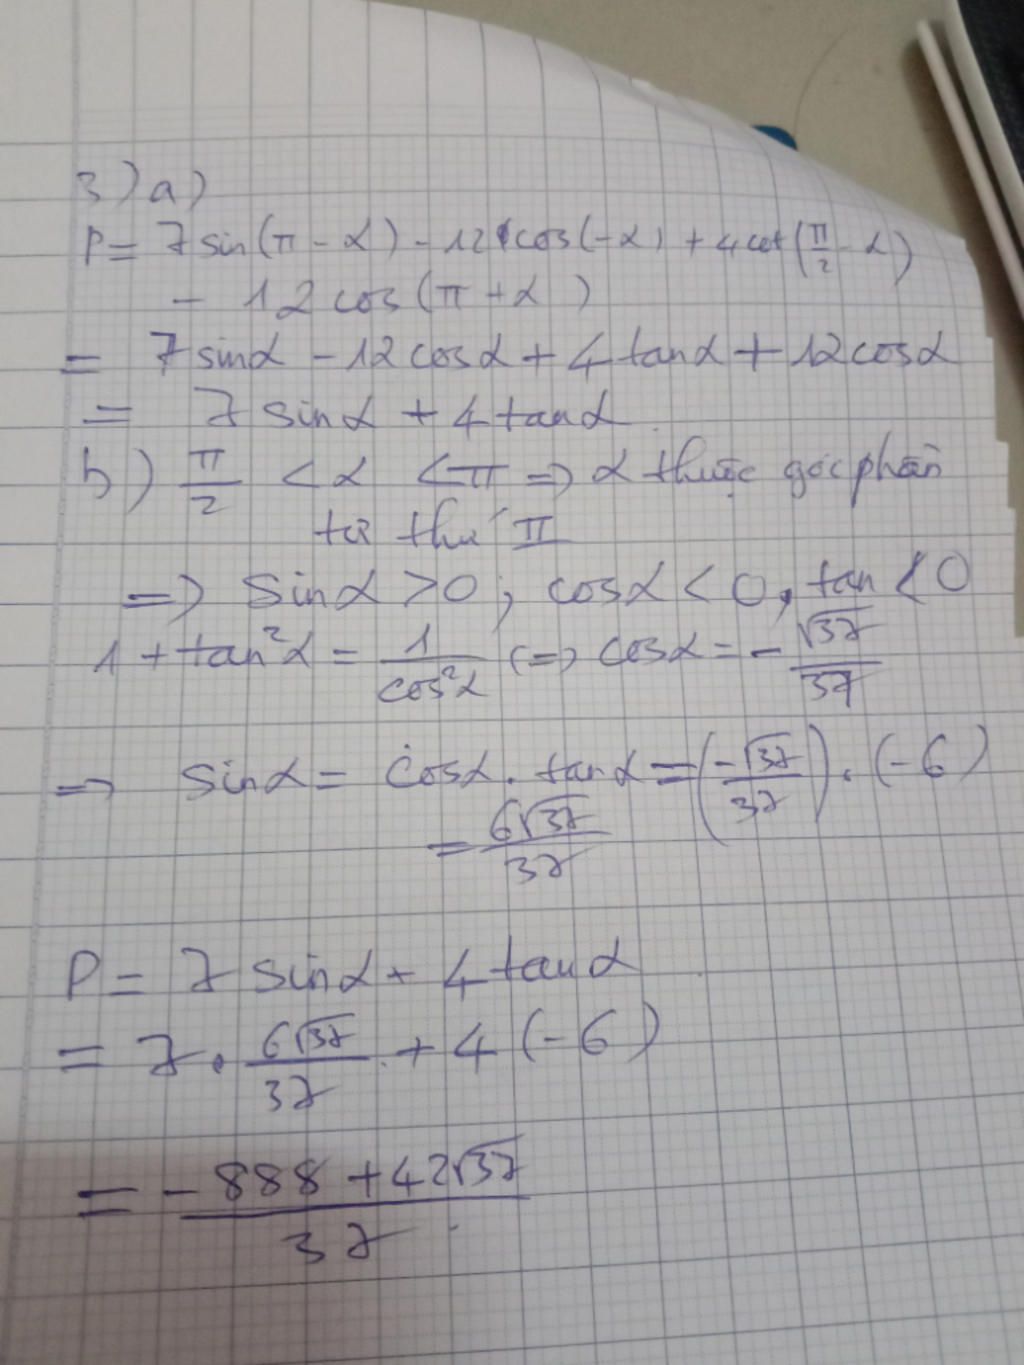 3) a)
P = 7 sin(π - α) - 12 cos(-α) + 4 cot(π/2 - α)
- 12 cos(π + α)
= 7 sinα - 12 cosα + 4 tanα + 12 cosα
= 7 sinα + 4 tanα
b) π/2 < α < π => α thuộc góc phần
tư thứ II
=> sinα > 0 ; cosα < 0, tan < 0
1 + tan²α = 1/cos²α (=> cosα = - √37/37
=> sinα = cosα . tanα = (-√37/37) . (-6)
= 6√37/37
P = 7 sinα + 4 tanα
= 7 . 6√37/37 + 4 (-6)
= -888 + 42√37/37